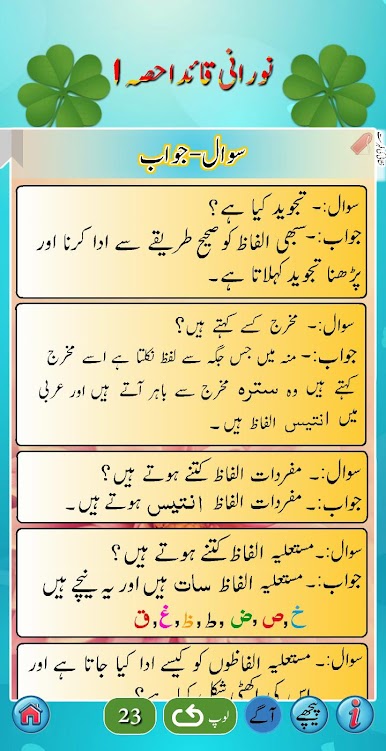 نورانی قائدا حصہ ا
سوال-جواب
سوال:۔ تجوید کیا ہے؟
جواب:۔ سبھی الفاظ کو صحیح طریقے سے ادا کرنا اور
پڑھنا تجوید کہلاتا ہے۔
سوال:۔ مخرج کسے کہتے ہیں؟
جواب:۔ منہ میں جس جگہ سے لفظ نکلتا ہے اسے مخرج
کہتے ہیں وہ سترہ مخرج سے باہر آتے ہیں اور عربی
میں انتیس الفاظ ہیں۔
سوال:۔ مفردات الفاظ کتنے ہوتے ہیں؟
جواب:۔ مفردات الفاظ انتیس ہوتے ہیں۔
سوال:۔ مستعلیہ الفاظ کتنے ہوتے ہیں؟
جواب:۔ مستعلیہ الفاظ سات ہیں اور یہ نیچے ہیں
خ,ص,ض,ط,ظ,غ,ق
سوال:۔ مستعلیہ الفاظوں کو کیسے ادا کیا جاتا ہے اور
اس کی اکھٹی شکل کیا ہے؟
پیچھے
آگے
لوپ
23